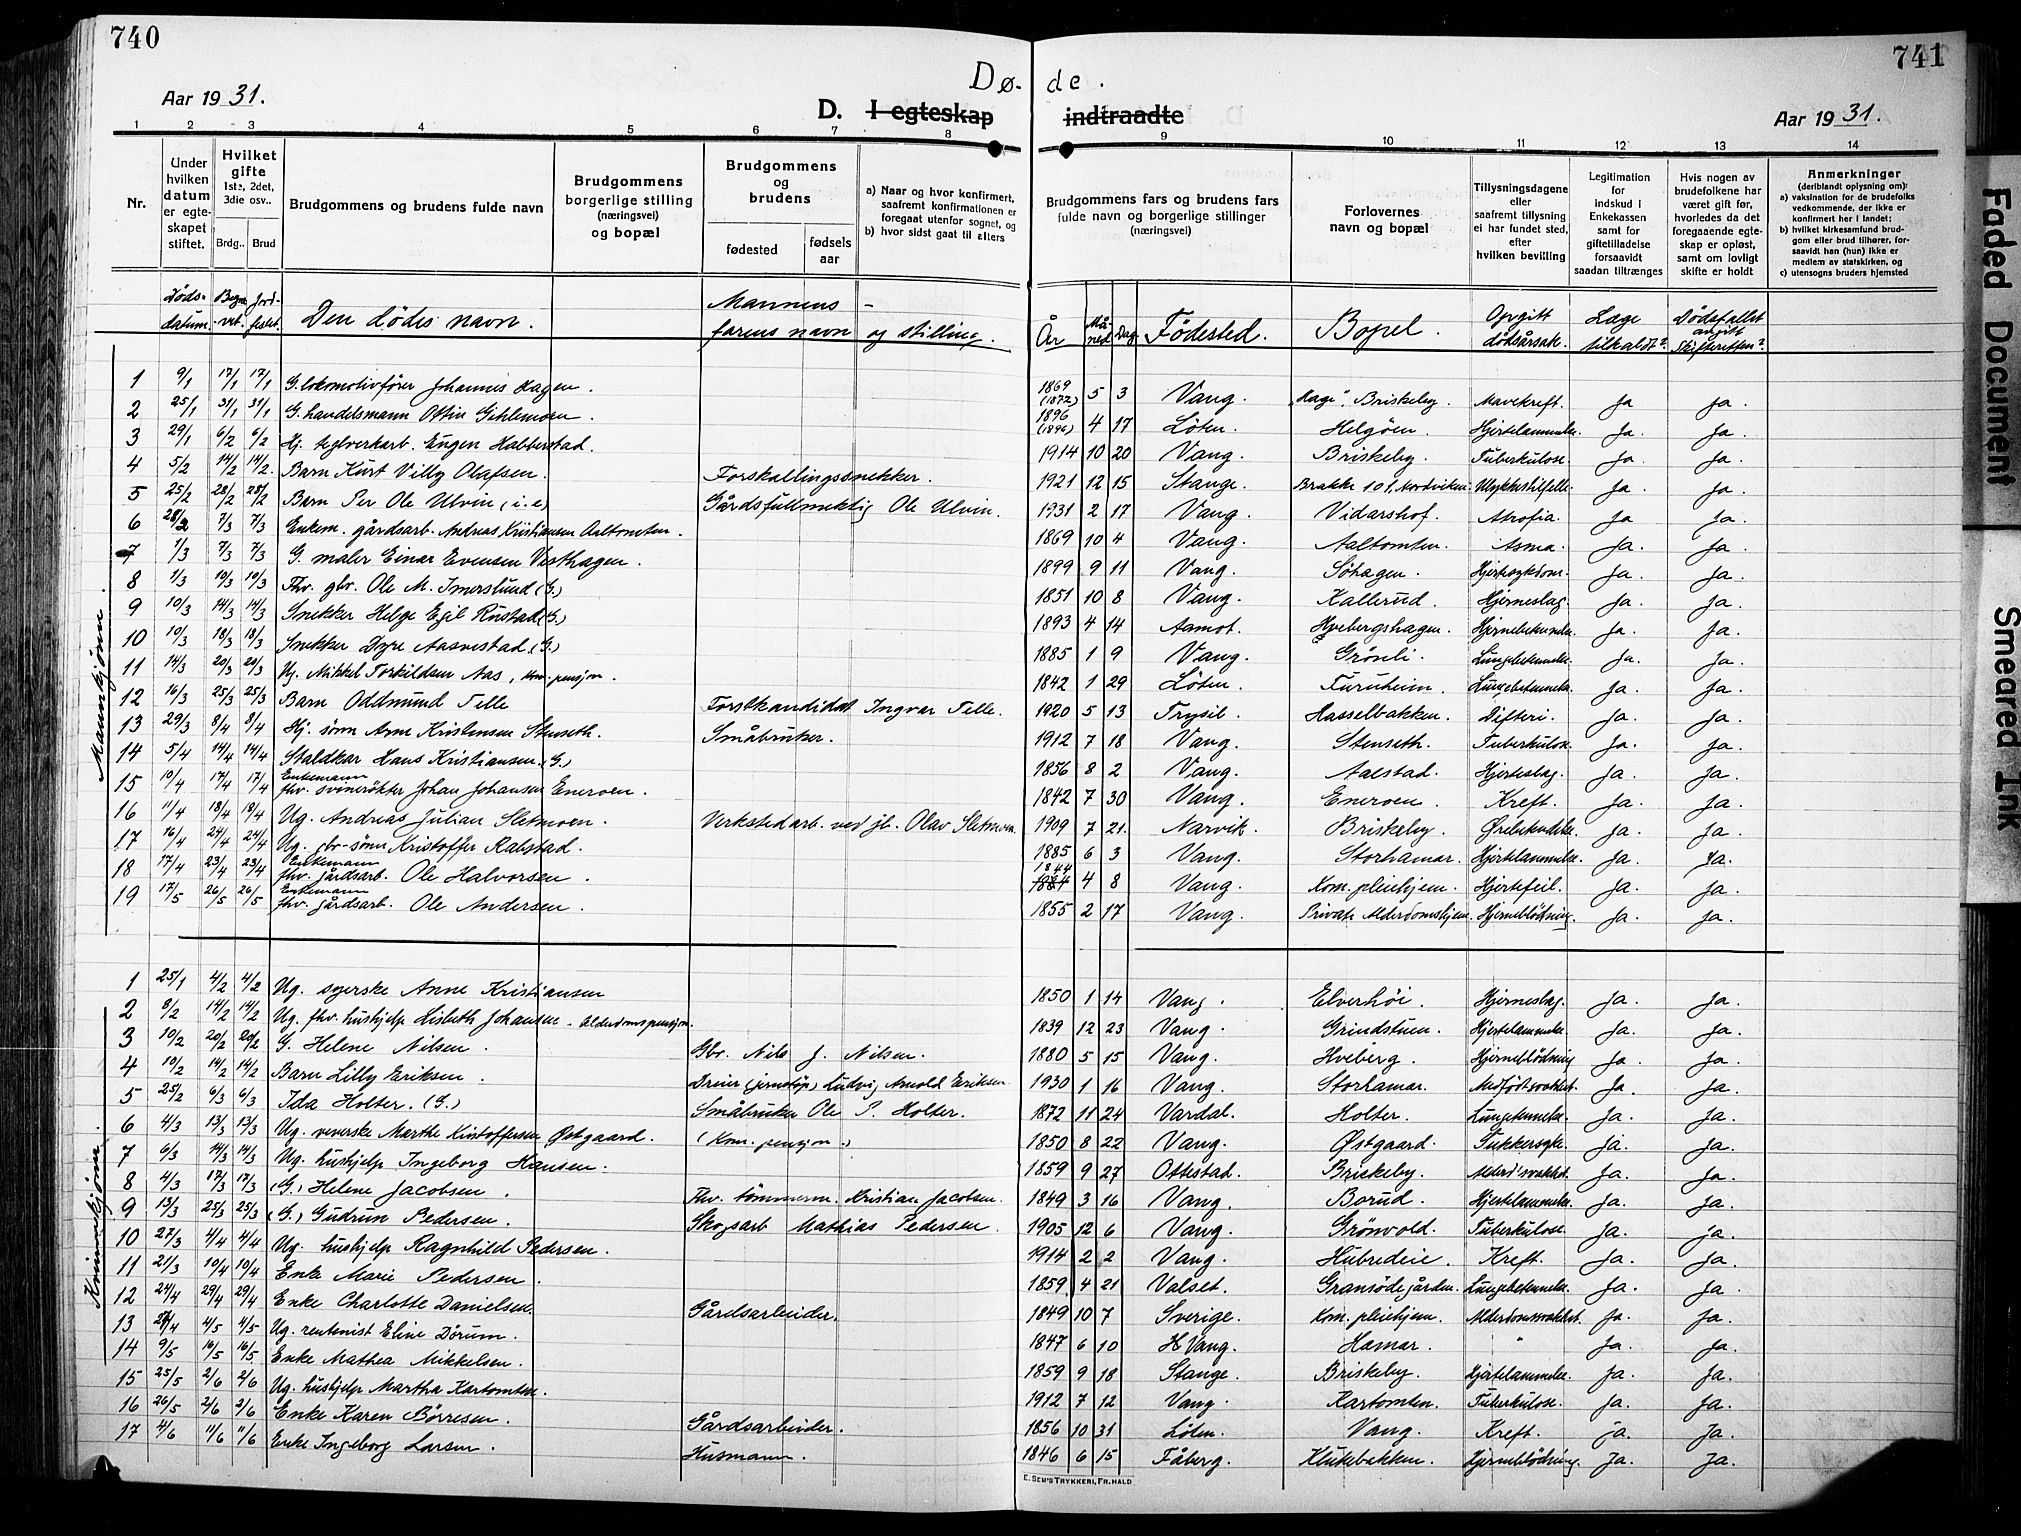 740
741
Dø- de.
Aar 1931.
D. I egteskap indtraadte
Aar 1931.
1 2 3 4 5 6 7 8 9 10 11 12 13 14
Nr.
Under hvilken datum er egteskapet stiftet.
Hvilket gifte 1ste, 2det, 3die osv..
Brdg.. Brud
Brudgommens og brudens fulde navn
Brudgommens borgerlige stilling (næringsvei) og bopæl
Brudgommens og brudens
fødested fødselsaar
a) Naar og hvor konfirmert, saafremt konfirmationen er foregaat utenfor sognet, og
b) hvor sidst gaat til alters
Brudgommens fars og brudens fars fulde navn og borgerlige stillinger (næringsvei)
Forlovernes navn og bopæl
Tillysningsdagene eller saafremt tillysning ei har fundet sted, efter hvilken bevilling
Legitimation for indskud i Enkekassen samt for giftetilladelse forsaavidt saadan tiltrænges
Hvis nogen av brudefolkene har været gift før, hvorledes da det foregaaende egteskap er opløst, samt om lovligt skifte er holdt
Anmerkninger (deriblandt oplysning om):
a) vaksination for de brudefolks vedkommende, der ikke er konfirmert her i landet;
b) hvilket kirkesamfund brudgom eller brud tilhører, forsaavidt han (hun) ikke er medlem av statskirken, og
c) utensogns bruders hjemsted
Døds- datum. Begravet. Jordfestet. Den dødes navn. Mannens - farens navn og stilling. År Måned Dag Fødested. Bopel. Opgitt dødsårsak. Læge tilkaldt? Dødsfallet angitt Skifteretten?
Mannkjønn.
1 9/1 17/1 17/1 G. lokomotivfører Johannes Hagen. 1869 (1872) 5 3 Vang. "Hage", Briskeby. Mavekreft. Ja Ja.
2 25/1 31/1 31/1 G. handelsmann Ottin Gihlemoen. 1896 (1896) 4 17 Løten. Helgøen. Hjertelammelse. Ja. Ja.
3 29/1 6/2 6/2 Hj. teglverkarb. Eugen Habberstad. 1914 10 20 Vang. Briskeby. Tuberkulose. Ja. Ja.
4 5/2 14/2 14/2. Barn Kurt Villy Olafsen. Forskallingssnekker. 1921 12 15 Stange. Brakke 101, Nordviken. Ulykkestilfelle. Ja. Ja.
5 25/2 28/2 28/2 Barn Per Ole Ulvin (i.e) Gårdsfullmektig Ole Ulvin. 1931 2 17 Vang. Vidarshof. Atrofia. Ja. Ja.
6 28/2 7/3 7/3 Enkem. gårdsarb. Andreas Kristiansen Aaltomten. 1869 10 4 Vang. Aaltomten. Asma. Ja. Ja.
7 1/3 7/3 7/3 G. maler Einar Evensen Vesthagen. 1899 9 11 Vang. Søhagen. Hjertesykdom. Ja. Ja.
8 1/3 10/3 10/3 Fhv. gbr. Ole M. Imerslund (G.) 1851 10 8 Vang. Kallerud. Hjerneslag. Ja. Ja.
9 10/3 14/3 14/3 Snekker Helge Egil Rustad (G.) 1893 4 14 Aamot. Hvebergshagen. Hjernebetendelse. Ja. Ja.
10 10/3 18/3 18/3 Snekker Dyre Aasvestad. (G.) 1885 1 9 Vang. Grönli. Lungebetennelse. Ja. Ja.
11 14/3 20/3 20/3 Ug. Mikkel Torkildsen Aas, kom. pensjon. 1842 1 29 Løten. Furuheim. Lungebetennelse. Ja. Ja.
12 16/3 25/3 25/3 Barn Oddmund Telle Forstkandidat Ingvar Telle. 1920 5 13 Trysil. Hasselbakken. Difteri. Ja. Ja.
13 29/3 8/4 8/4 Hj. sønn Arne Kristensen Stenseth. Småbruker. 1912 7 18 Vang. Stenseth. Tuberkulose. Ja. Ja.
14 5/4 14/4 14/4 Staldkar Hans Kristiansen. (G.) 1856 8 2 Vang. Aalstad. Hjerteslag. Ja. Ja.
15 10/4 17/4 17/4 Enkemann fhv. svinerøkter Johan Johansen Eneroen. 1842 7 30 Vang. Eneroen. Kreft. Ja. Ja.
16 11/4 18/4 18/4 Ug. Andreas Julian Sletmoen. Verkstedarb. ved jb. Olav Sletmoen. 1909 7 21. Narvik. Briskeby. Ørebetendelse. Ja. Ja.
17 16/4 24/4 24/4 Ug. gbr-sønn Kristoffer Rabstad. 1885 6 3 Vang. Storhamar. Hjertelammelse. Ja. Ja.
18 17/4 23/4 23/4 Enkemann fhv. gårdsarb. Ole Halvorsen. 1844 4 8 Vang. Kom. pleiehjem. Hjertefeil. Ja. Ja.
19 17/5 26/5 26/5 Enkemann fhv. gårdsarb. Ole Andersen. 1855 2 17 Vang. Private Alderdomshjem. Hjerneblödning. Ja. Ja.
Kvinnekjønn.
1 25/1 4/2 4/2 Ug. syerske Anne Kristiansen 1850 1 14 Vang. Elverhöi. Hjerneslag. Ja. Ja.
2 8/2 14/2 14/2 Ug. fhv. hushjelp Lisbeth Johansen. Alderdomspensjon. 1839 12 23 Vang. Grindstuen. Hjertelammelse. Ja. Ja.
3 10/2 20/2 20/2 G. Helene Nilsen. Gbr. Nils J. Nilsen. 1880 5 15 Vang. Hveberg. Hjerneblödning Ja. Ja.
4 10/2 14/2 14/2 Barn Lilly Eriksen. Dreier (jernstöp) Ludvig Arnold Eriksen. 1930 1 16 Vang. Storhamar. Medfödt svakhet. Ja. Ja.
5 25/2 6/3 6/3 Ida Holter. (G.) Småbruker Ole P. Holter. 1872 11 24 Vardal. Holter. Lungetennelse. Ja. Ja.
6 4/3 13/3 13/3 Ug. veverske Marthe Kristoffersen Østgaard. (Kom. pensjon.) 1850 8 22 Vang. Østgaard. Sukkersyke. Ja. Ja.
7 6/3 14/3 14/3 Ug. hushjelp Ingeborg Hansen. 1859 9 27 Ottestad. Briskeby. Alderd.svakhet. Ja. Ja.
8 4/3 17/3 17/3 (G.) Helene Jacobsen. Fhv. tömmerm. Kristian Jacobsen. 1849 3 16 Vang. Borud. Hjertelammelse. Ja. Ja.
9 13/3 25/3 25/3 (G.) Gudrun Pedersen. Skogsarb Mathias Pedersen. 1905 12 6 Vang. Grönvold. Tuberkulose. Ja. Ja.
10 27/3 4/4 4/4 Ug. hushjelp Ragnhild Pedersen. 1914 2 2 Vang. Hubredeie. Kreft. Ja. Ja.
11 21/3 10/4 10/4 Enke Marie Pedersen. 1859. 4 21 Valset. Gransödegården. Lungebetennelse. Ja. Ja.
12 24/4 29/4 29/4 Enke Charlotte Danielsen. Gårdsarbeider. 1849 10 7 Sverige. Kom. pleiehjem. Alderdomssvakhet. Ja. Ja.
13 27/4 4/5 4/5 Ug. rentenist Eline Dörum. 1847 6 10 H Vang. Hamar. " Ja. Ja.
14 9/5 16/5 16/5 Enke Mathea Mikkelsen. 1859 9 18 Stange. Briskeby. Hjertelammelse. Ja. Ja.
15 25/5 2/6 2/6 Ug. hushjelp Martha Kartomten. 1912 7 12 Vang. Kartomten. Tuberkulose. Ja. Ja.
16 26/5 2/6 2/6 Enke Karen Börresen. Gårdsarbeider. 1856 10 31 Löten. Vang. Kreft. Ja. Ja.
17 4/6 11/6 11/6 Enke Ingeborg Larsen. Husmann. 1846 6 15 Fåberg. Klukebakken. Hjerneblödning. Ja. Ja.
E. SEM'S TRYKKERI, FR.HALD
Faded Document
Smeared Ink